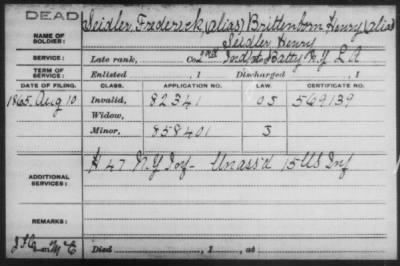 DEAD
NAME OF SOLDIER: Seidler, Frederick (alias) Brittenborn Henry (alias)
Seidler Henry
SERVICE: Late rank, Co. 2nd Ind't Batty N.Y. L A
TERM OF SERVICE: Enlisted , 1 Discharged , 1
DATE OF FILING. CLASS. APPLICATION NO. LAW. CERTIFICATE NO.
1865. Aug 10 Invalid, 82341 OS 569139
Widow,
Minor, 858401 3
ADDITIONAL SERVICES: H 47 N.Y. Inf - Unass'd 15 US Inf
REMARKS:
Died , 1 , at